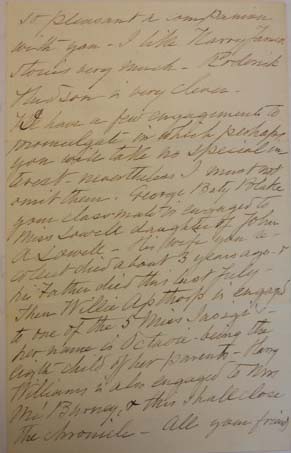 so pleasant a companion
with you - I like Harry James
stories very much - Roderick
Hudson is very clever.
I have a few engagements to
promulgate in which perhaps
you will take no special in
terest - nevertheless I must not
omit them. George Baty Blake
your classmate is engaged to
Miss Lowell daughter of John
A Lowell - His wife you re-
collect died about 3 years ago - &
his Father died this last July -
Then Willie Apthorp is engaged
to one of the 5 Miss Savage's -
her name is Octavie being the
eigth child of her parents - Harry
Williams is also engaged to Mrs
Mc Burney, & this I shall close
the chronicle - All your friends